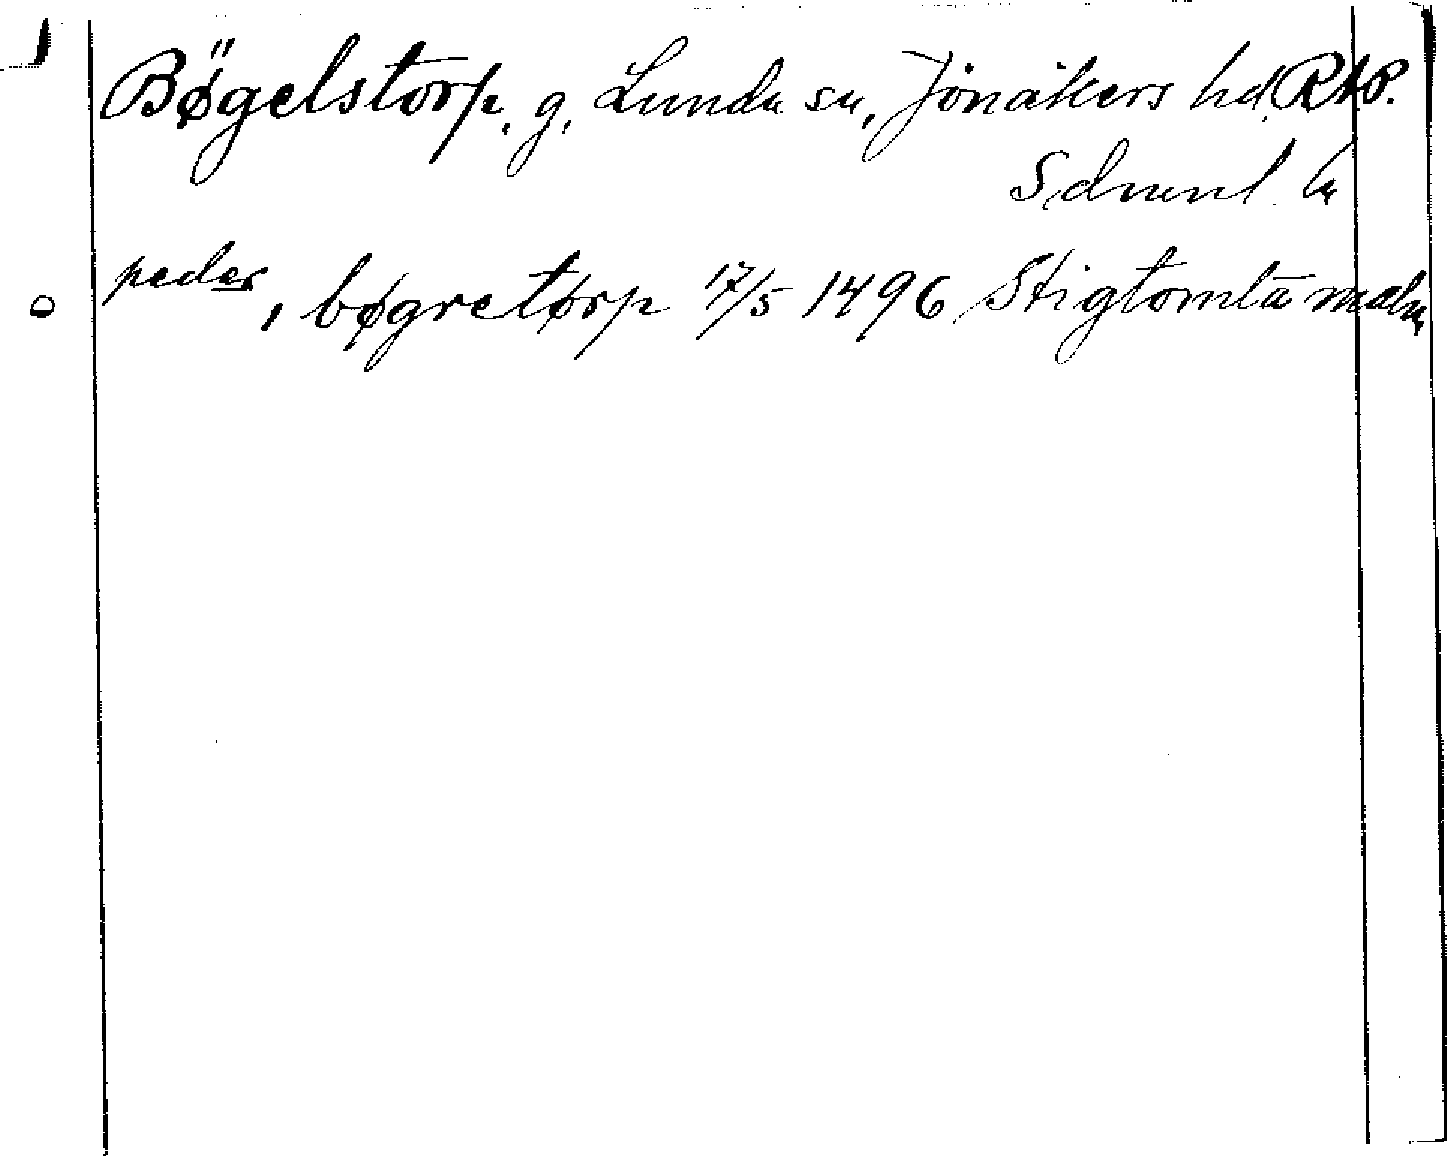 Bøgelstorp, g, Lunda sn, Jönåkers hd, RAP.
Sdmnl. L
peder, i bøgretørp 17/5 1496 Stigtomta